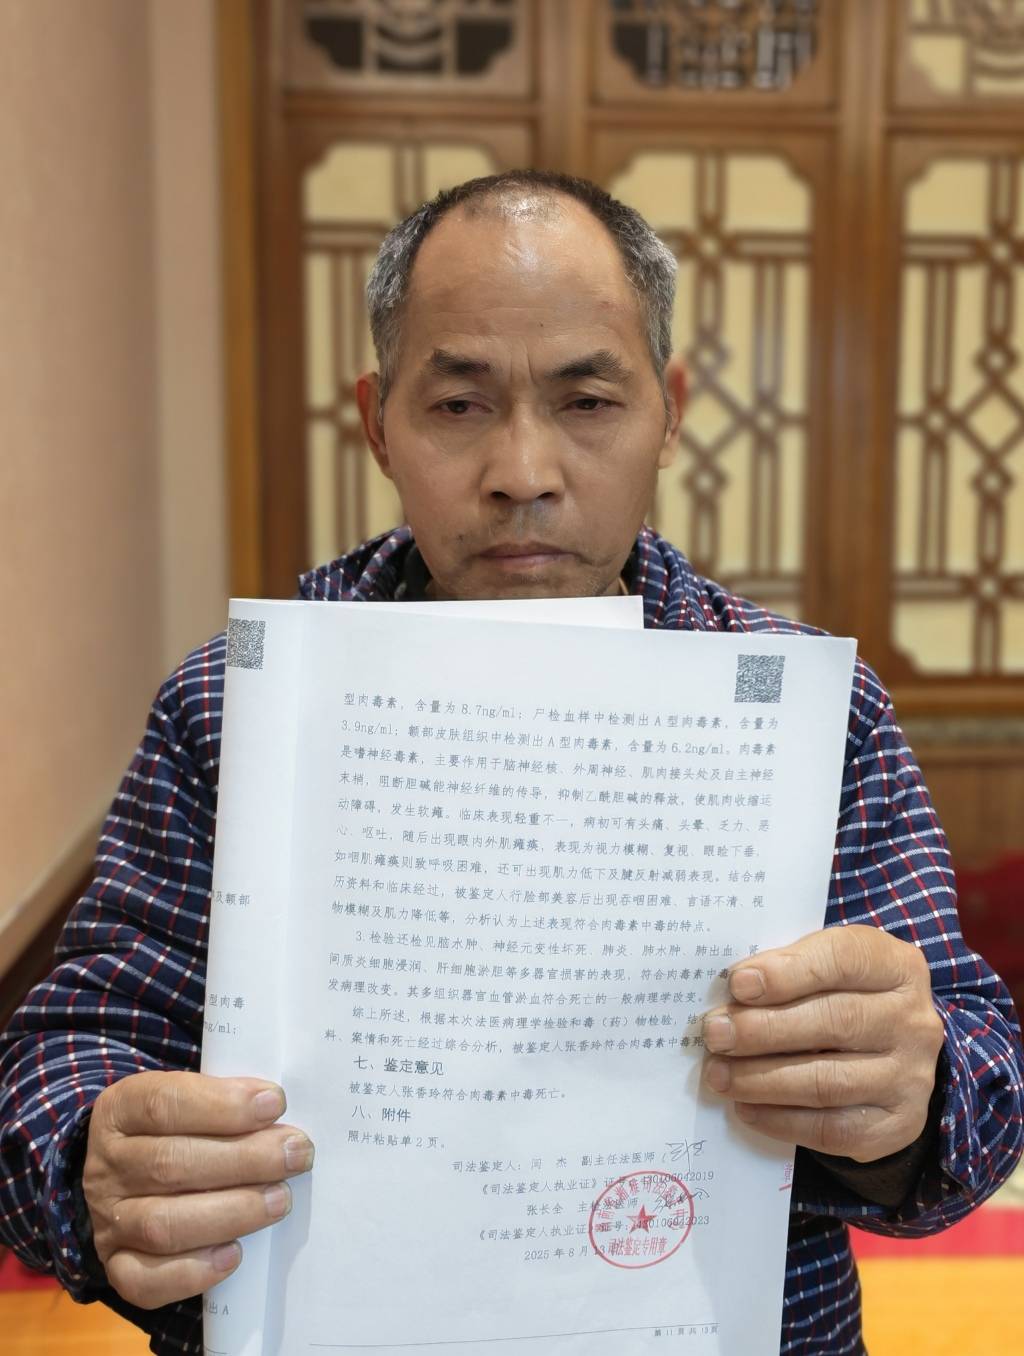 型肉毒素，含量为8.7ng/ml；尸检血样中检测出A型肉毒素，含量为
3.9ng/ml；额部皮肤组织中检测出A型肉毒素，含量为6.2ng/ml。肉毒素
是嗜神经毒素，主要作用于脑神经核、外周神经、肌肉接头处及自主神经
末梢，阻断胆碱能神经纤维的传导，抑制乙酰胆碱的释放，使肌肉收缩运
动障碍，发生软瘫。临床表现轻重不一，病初可有头痛、头晕、乏力、恶
心、呕吐，随后出现眼内外肌瘫痪，表现为视力模糊、复视、眼睑下垂，
如咽肌瘫痪则致呼吸困难，还可出现肌力低下及腱反射减弱表现。结合病
历资料和临床经过，被鉴定人行脸部美容后出现吞咽困难、言语不清、视
物模糊及肌力降低等，分析认为上述表现符合肉毒素中毒的特点。
3.检验还检见脑水肿、神经元变性坏死、肺炎、肺水肿、肺出血、肾
间质炎细胞浸润、肝细胞淤胆等多器官损害的表现，符合肉毒素中毒
发病理改变。其多组织器官血管淤血符合死亡的一般病理学改变。
综上所述，根据本次法医病理学检验和毒（药）物检验，结
料、案情和死亡经过综合分析，被鉴定人张香玲符合肉毒素中毒死
七、鉴定意见
被鉴定人张香玲符合肉毒素中毒死亡。
八、附件
照片粘贴单2页。
司法鉴定人：闵 杰 副主任法医师
《司法鉴定人执业证》证号：430106042019
张长全 主检法医师
《司法鉴定人执业证》证号：430106042023
2025年8月13日
司法鉴定专用章
第 11 页 共 13 页
及额部
型肉毒
ng/ml；
出 A